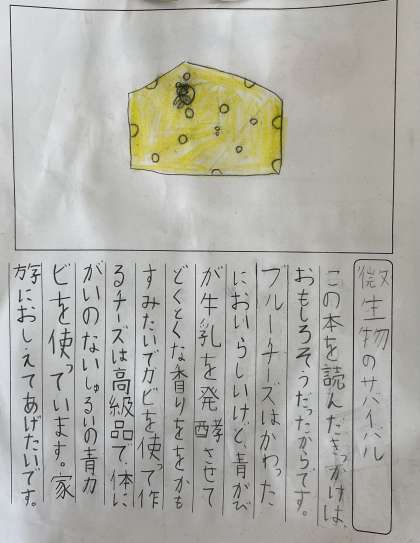 微生物のサバイバル
この本を読んだきっかけは、
おもしろそうだったからです。
ブルーチーズはかわった
においらしいけど、青かび
が牛乳を発酵させて
どくとくな香りををかも
すみたいでカビを使って作
るチーズは高級品で、体に
がいのないしゅるいの青カ
ビを使っています。家
族におしえてあげたいです。